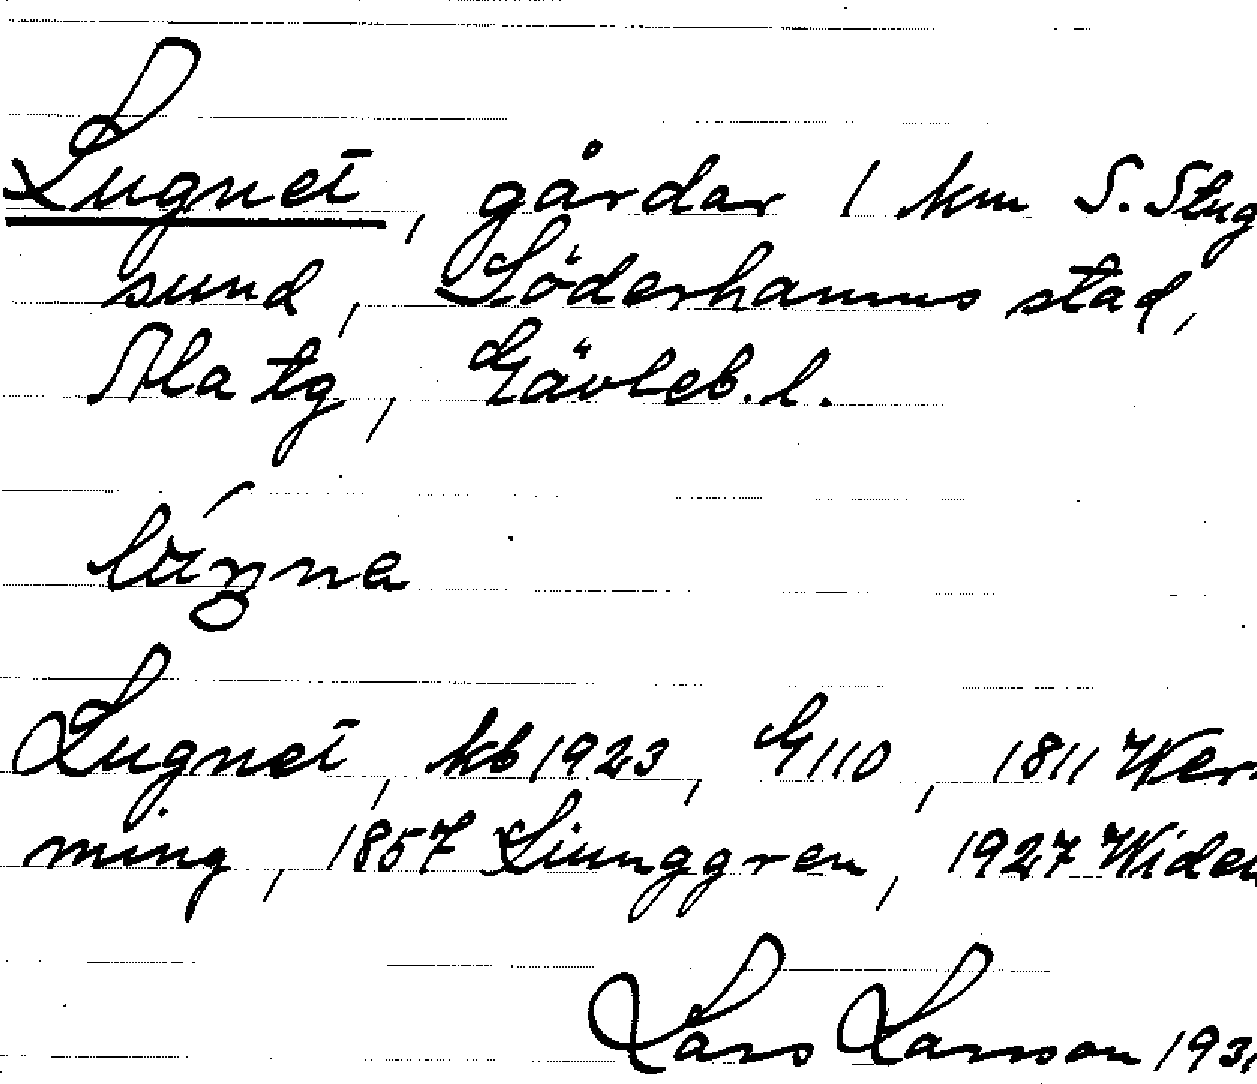 Lugnet, gårdar 1 km S. Stug
sund, Söderhamns stad,
Ala tg, Gävleb. l.
Lugnet, kb 1923, G110, 1811 Wer-
ming, 1857 Liunggren, 1927 Widen
Lars Larsson 193